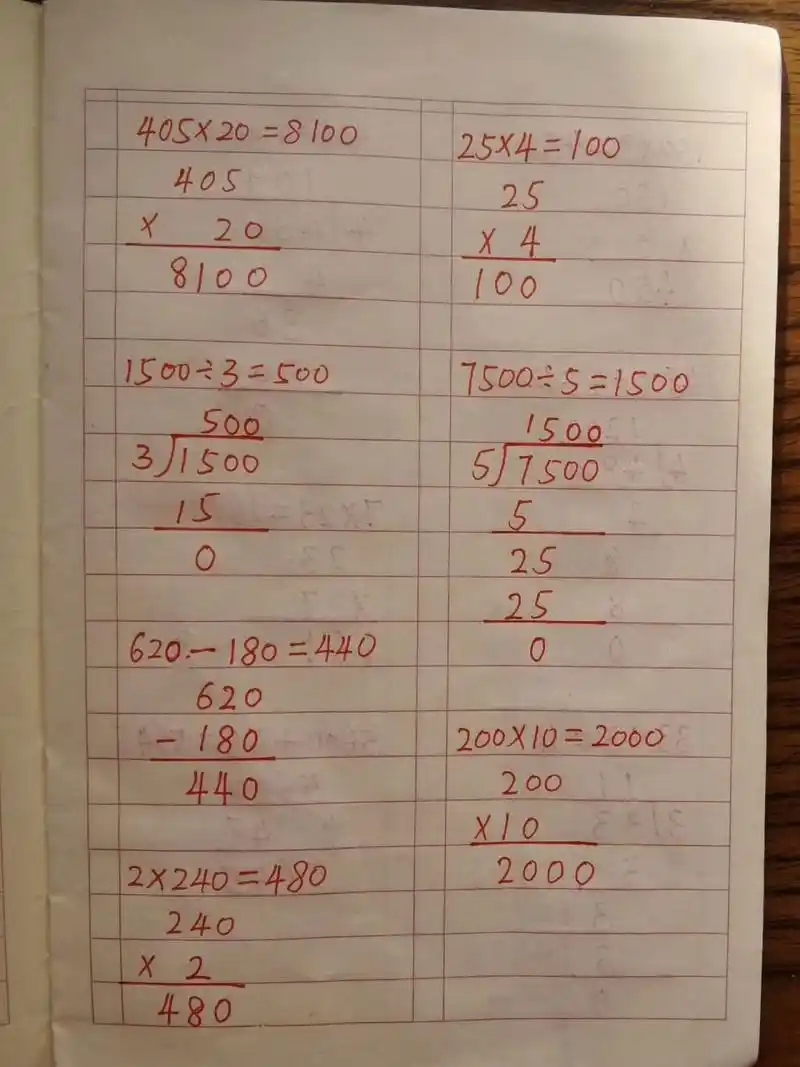 405×20=8100
405
× 20
8100
1500÷3=500
500
3)1500
15
0
620-180=440
620
-180
440
2×240=480
240
× 2
480
25×4=100
25
× 4
100
7500÷5=1500
1500
5)7500
5
25
25
0
200×10=2000
200
×10
2000